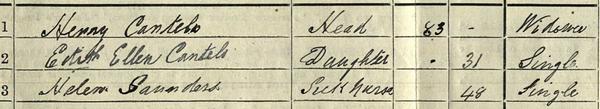 1 Henry Cantelo Head 83 - Widower
2 Edith Ellen Cantelo Daughter - 31 Single
3 Helen Saunders Sick nurse 48 Single